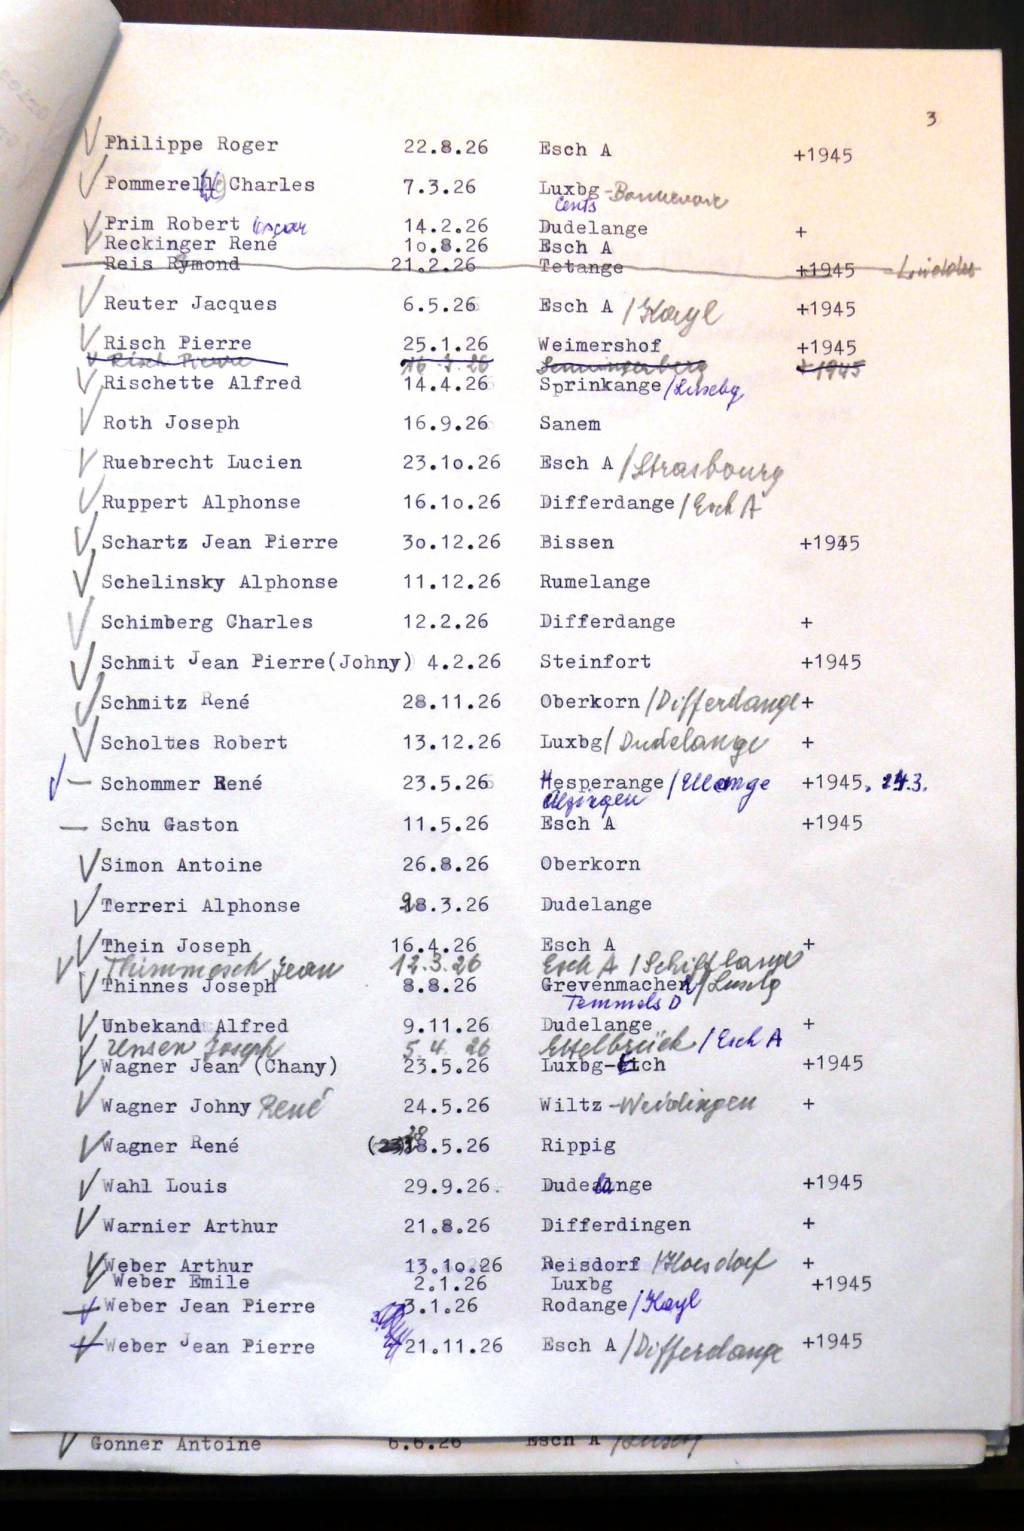 3
Philippe Roger 22.8.26 Esch A +1945
Pommerell Charles 7.3.26 Luxbg-Bonnevoie
Cents
Prim Robert Oscar 14.2.26 Dudelange +
Reckinger René 10.8.26 Esch A
Reis Rymond 21.2.26 Tetange +1945
Reuter Jacques 6.5.26 Esch A /Kayl +1945
Risch Pierre 25.1.26 Weimershof +1945
Risch Pierre 16.7.26 Senningerberg +1945
Rischette Alfred 14.4.26 Sprinkange/Luxbg
Roth Joseph 16.9.26 Sanem
Ruebrecht Lucien 23.10.26 Esch A /Strasbourg
Ruppert Alphonse 16.10.26 Differdange/Esch A
Schartz Jean Pierre 30.12.26 Bissen +1945
Schelinsky Alphonse 11.12.26 Rumelange
Schimberg Charles 12.2.26 Differdange +
Schmit Jean Pierre(Johny) 4.2.26 Steinfort +1945
Schmitz René 28.11.26 Oberkorn /Differdange +
Scholtes Robert 13.12.26 Luxbg/Dudelange +
Schommer René 23.5.26 Hesperange/Ellange +1945, 24.3.
Alzingen
Schu Gaston 11.5.26 Esch A +1945
Simon Antoine 26.8.26 Oberkorn
Terreri Alphonse 28.3.26 Dudelange
Thein Joseph 16.4.26 Esch A +
Thimmesch Jean 12.3.26 Esch A /Schifflange
Thinnes Joseph 8.8.26 Grevenmacher/Luxbg
Temmels D
Unbekand Alfred 9.11.26 Dudelange +
Urisen Joseph 5.4.26 Ettelbrück /Esch A
Wagner Jean (Chany) 23.5.26 Luxbg-Eich +1945
Wagner Johny René 24.5.26 Wiltz -Weidingen +
Wagner René 28.5.26 Rippig
Wahl Louis 29.9.26. Dudelange +1945
Warnier Arthur 21.8.26 Differdingen +
Weber Arthur 13.10.26 Reisdorf /Hoesdorf +
Weber Emile 2.1.26 Luxbg +1945
Weber Jean Pierre 3.1.26 Rodange/Kayl
Weber Jean Pierre 21.11.26 Esch A /Differdange +1945
Gonner Antoine 6.6.26 Esch A /Luxbg